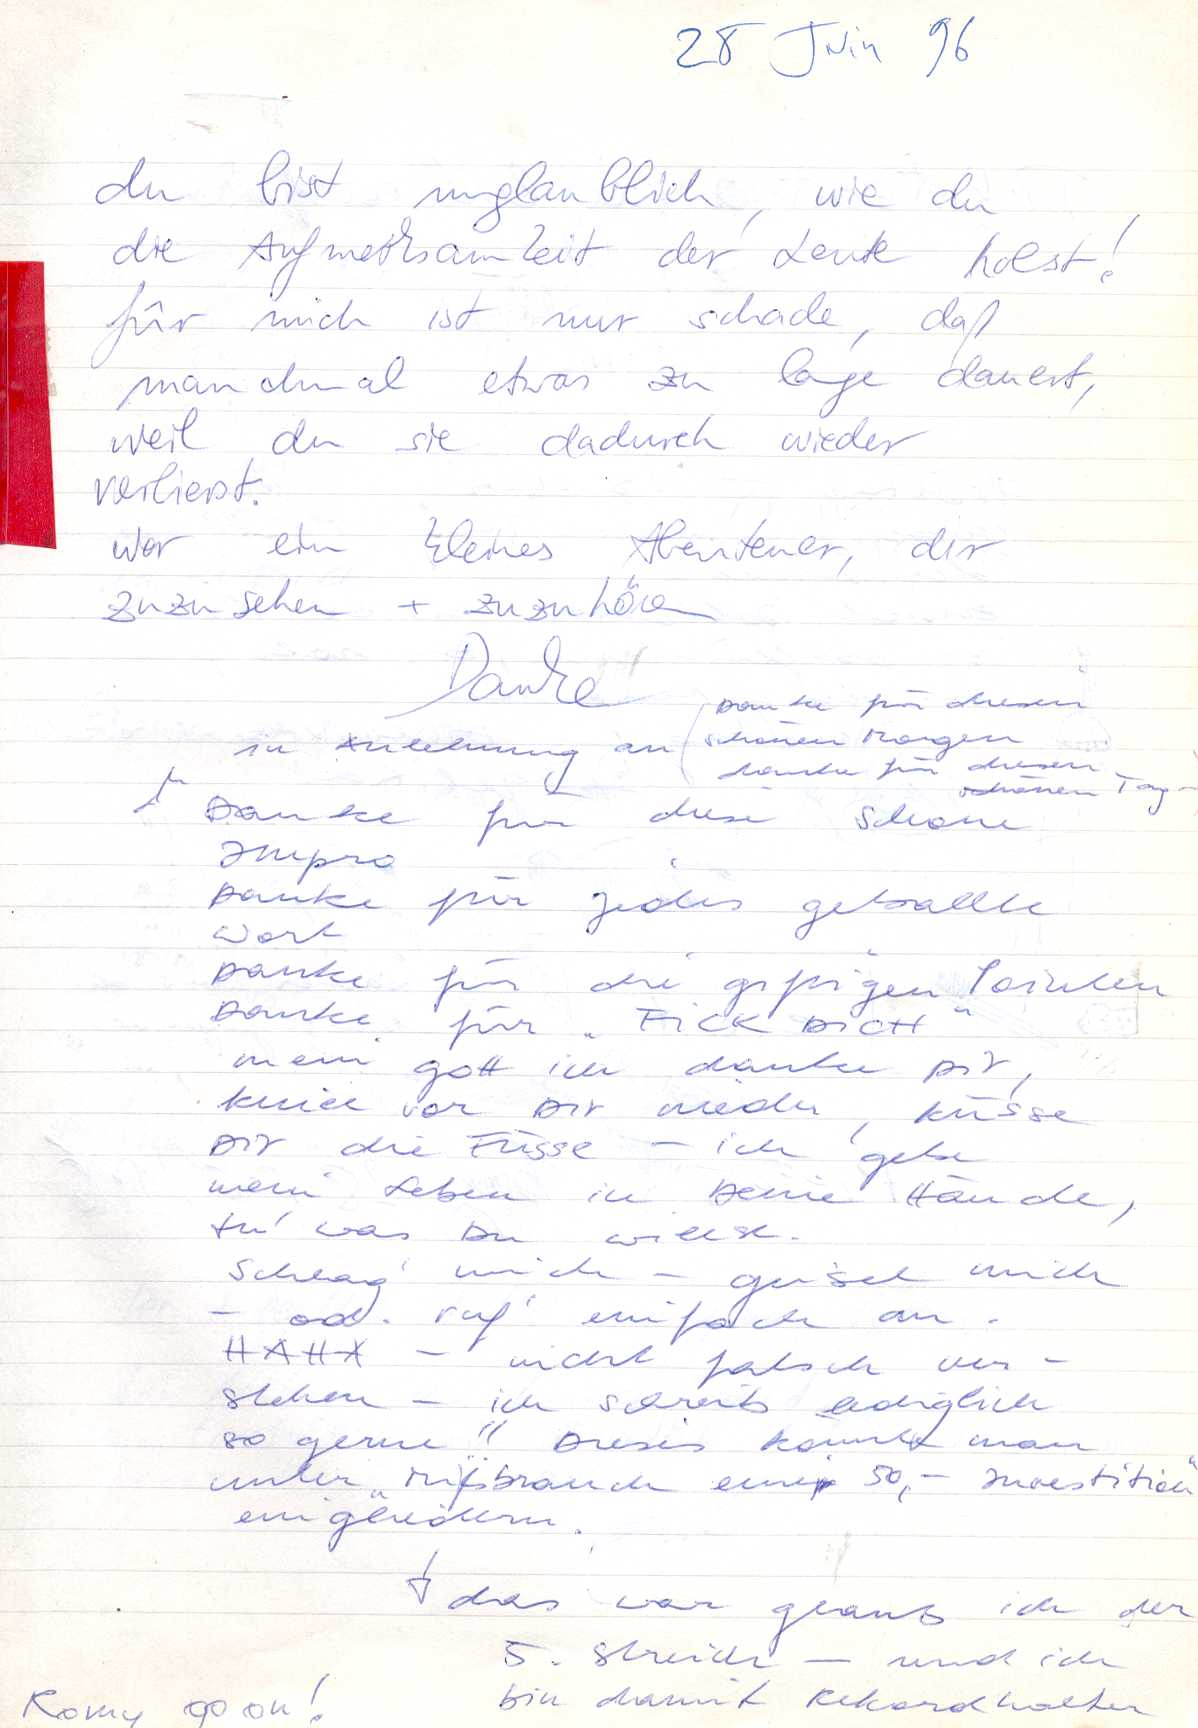 28 Juin 96
du bist unglaublich, wie du
die Aufmerksamkeit der Leute holst!
für mich ist nur schade, daß
manchmal etwas zu lage dauert,
weil du sie dadurch wieder
verlierst.
war ein kleines Abenteuer, dir
zuzusehen + zuzuhören
Danke
in Anlehnung an (Danke für diesen
schönen Morgen
danke für diesen
schönen Tag
Danke für diese schöne
Impro
Danke für jedes geballte
Wort
Danke für die giftigen Pointen
Danke für „FICK DICH"
mein gott ich danke Dir,
knie vor Dir nieder, küsse
Dir die Füsse – ich gebe
mein Leben in Deine Hände,
tu' was Du willst.
Schlag' mich – geisel mich
– od. ruf' einfach an.
HAHA – nicht falsch ver-
stehen – ich schreib lediglich
so gerne!! Dieses könnte man
unter „Mißbrauch einer 50,– Investition"
eingliedern.
das war glaub ich der
5. Streich – und ich
bin damit Rekordhalter
Romy go on!